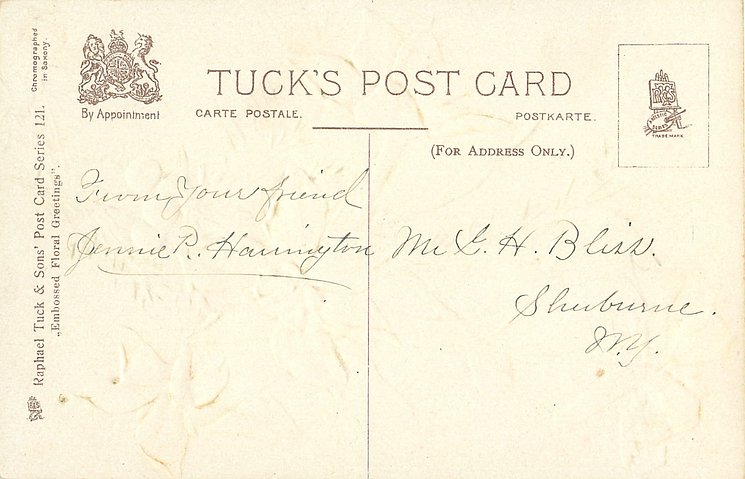 Chromographed
in Saxony.
Raphael Tuck & Sons' Post Card Series 121.
„Embossed Floral Greetings".
By Appointment
TUCK'S POST CARD
CARTE POSTALE.
POSTKARTE.
(FOR ADDRESS ONLY.)
TRADE MARK
From your friend
Jennie P. Harrington
Mr G. H. Bliss.
Sherburne.
N.Y.